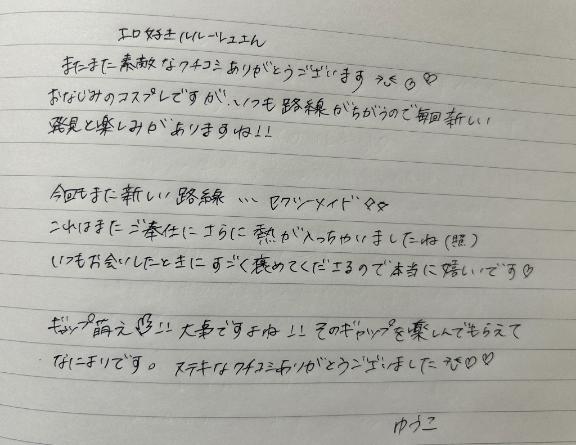 エロ好きルルーシュさん
またまた素敵なクチコミありがとうございます♡
おなじみのコスプレですが、いつも路線がちがうので毎回新しい
発見と楽しみがありますね!!
今回もまた新しい路線… セクシーメイド
これはまたご奉仕にさらに熱が入っちゃいましたね(照)
いつもお会いしたときにすごく褒めてくださるので本当に嬉しいです♡
ギャップ萌え!! 大事ですよね!! そのギャップを楽しんでもらえて
なによりです。ステキなクチコミありがとうございました♡♡
ゆうこ